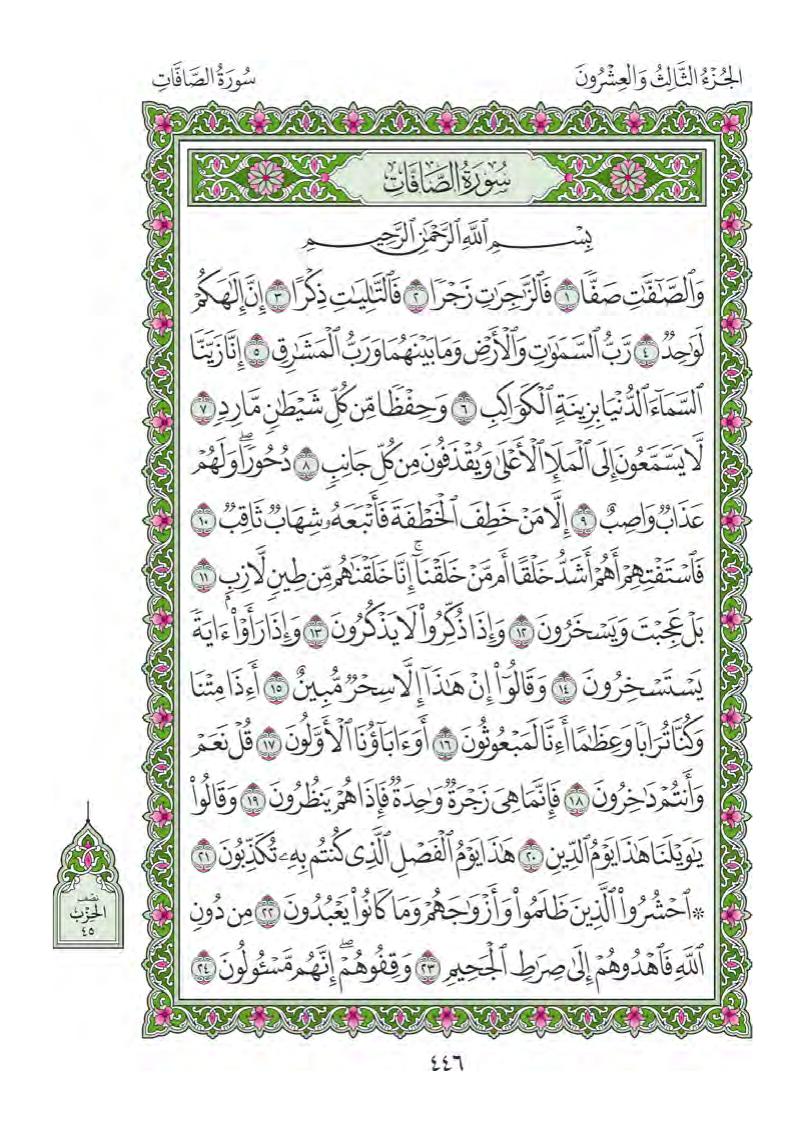 الجُزْءُ الثَّالِثُ وَالعِشْرُونَ
سُورَةُ الصَّافَّاتِ
سُورَةُ الصَّافَّاتِ
بِسْمِ ٱللَّهِ ٱلرَّحْمَٰنِ ٱلرَّحِيمِ
وَٱلصَّٰٓفَّٰتِ صَفّٗا ١ فَٱلزَّٰجِرَٰتِ زَجۡرٗا ٢ فَٱلتَّٰلِيَٰتِ ذِكۡرًا ٣ إِنَّ إِلَٰهَكُمۡ
لَوَٰحِدٞ ٤ رَّبُّ ٱلسَّمَٰوَٰتِ وَٱلۡأَرۡضِ وَمَا بَيۡنَهُمَا وَرَبُّ ٱلۡمَشَٰرِقِ ٥ إِنَّا زَيَّنَّا
ٱلسَّمَآءَ ٱلدُّنۡيَا بِزِينَةٍ ٱلۡكَوَاكِبِ ٦ وَحِفۡظٗا مِّن كُلِّ شَيۡطَٰنٖ مَّارِدٖ ٧
لَّا يَسَّمَّعُونَ إِلَى ٱلۡمَلَإِ ٱلۡأَعۡلَىٰ وَيُقۡذَفُونَ مِن كُلِّ جَانِبٖ ٨ دُحُورٗاۖ وَلَهُمۡ
عَذَابٞ وَاصِبٌ ٩ إِلَّا مَنۡ خَطِفَ ٱلۡخَطۡفَةَ فَأَتۡبَعَهُۥ شِهَابٞ ثَاقِبٞ ١٠
فَٱسۡتَفۡتِهِمۡ أَهُمۡ أَشَدُّ خَلۡقًا أَم مَّنۡ خَلَقۡنَآۚ إِنَّا خَلَقۡنَٰهُم مِّن طِينٖ لَّازِبِۭ ١١
بَلۡ عَجِبۡتَ وَيَسۡخَرُونَ ١٢ وَإِذَا ذُكِّرُواْ لَا يَذۡكُرُونَ ١٣ وَإِذَا رَأَوۡاْ ءَايَةٗ
يَسۡتَسۡخِرُونَ ١٤ وَقَالُوٓاْ إِنۡ هَٰذَآ إِلَّا سِحۡرٞ مُّبِينٌ ١٥ أَءِذَا مِتۡنَا
وَكُنَّا تُرَابٗا وَعِظَٰمًا أَءِنَّا لَمَبۡعُوثُونَ ١٦ أَوَءَابَآؤُنَا ٱلۡأَوَّلُونَ ١٧ قُلۡ نَعَمۡ
وَأَنتُمۡ دَٰخِرُونَ ١٨ فَإِنَّمَا هِيَ زَجۡرَةٞ وَٰحِدَةٞ فَإِذَا هُمۡ يَنظُرُونَ ١٩ وَقَالُواْ
يَٰوَيۡلَنَا هَٰذَا يَوۡمُ ٱلدِّينِ ٢٠ هَٰذَا يَوۡمُ ٱلۡفَصۡلِ ٱلَّذِي كُنتُم بِهِۦ تُكَذِّبُونَ ٢١
۞ ٱحۡشُرُواْ ٱلَّذِينَ ظَلَمُواْ وَأَزۡوَٰجَهُمۡ وَمَا كَانُواْ يَعۡبُدُونَ ٢٢ مِن دُونِ
ٱللَّهِ فَٱهۡدُوهُمۡ إِلَىٰ صِرَٰطِ ٱلۡجَحِيمِ ٢٣ وَقِفُوهُمۡۖ إِنَّهُم مَّسۡـُٔولُونَ ٢٤
نصف
الحزب
٤٥
٤٤٦